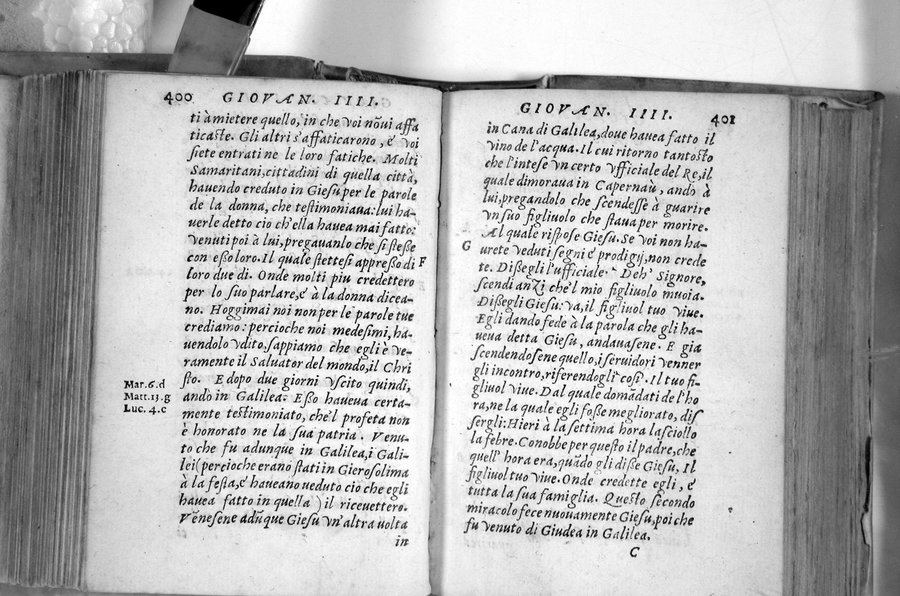 400 GIOVAN. IIII.
ti à mietere quello, in che voi nõ ui affa
ticaste. Gli altri s'affaticarono, e voi
siete entrati ne le loro fatiche. Molti
Samaritani, cittadini di quella città,
hauendo creduto in Giesu per le parole
de la donna, che testimoniaua: lui ha-
uerle detto cio ch'ella hauea mai fatto:
venuti poi à lui, pregauanlo che si stesse
con esso loro. Il quale stettesi appresso di F
loro due dì. Onde molti piu credettero
per lo suo parlare, e à la donna dicea-
no. Hoggimai noi non per le parole tue
crediamo: percioche noi medesimi, ha-
uendolo vdito, sappiamo che egli è ve-
ramente il Saluator del mondo, il Chri
sto. E dopo due giorni vscito quindi,
andò in Galilea. Esso haueua certa-
mente testimoniato, che'l profeta non
è honorato ne la sua patria. Venu-
to che fu adunque in Galilea, i Gali-
lei (percioche erano stati in Gierosolima
à la festa, e haueano veduto cio che egli
hauea fatto in quella) il riceuettero.
Vẽnesene adũque Giesu vn'altra uolta
in
Mar. 6. d
Matt. 13. g
Luc. 4. c
GIOVAN. IIII. 401
in Cana di Galilea, doue hauea fatto il
vino de l'acqua. Il cui ritorno tantosto
che l'intese vn certo vfficiale del Re, il
quale dimoraua in Capernaũ, andò à
lui, pregandolo che scendesse à guarire
vn suo figliuolo che staua per morire.
Al quale rispose Giesu. Se voi non ha-
G urete veduti segni e prodigij, non crede
te. Dissegli l'ufficiale. Deh' Signore,
scendi anzi che'l mio figliuolo muoia.
Dissegli Giesu: va, il figliuol tuo viue.
Egli dando fede à la parola che gli ha-
ueua detta Giesu, andauasene. E gia
scendendosene quello, i seruidori venner
gli incontro, riferendogli così. Il tuo fi-
gliuol viue. Dal quale domãdati de l'ho
ra, ne la quale egli fosse megliorato, dis
sergli: Hieri à la settima hora lasciollo
la febre. Conobbe per questo il padre, che
quell' hora era, quãdo gli disse Giesu, Il
figliuol tuo viue. Onde credette egli, e
tutta la sua famiglia. Questo secondo
miracolo fece nuouamente Giesu, poi che
fu venuto di Giudea in Galilea.
C